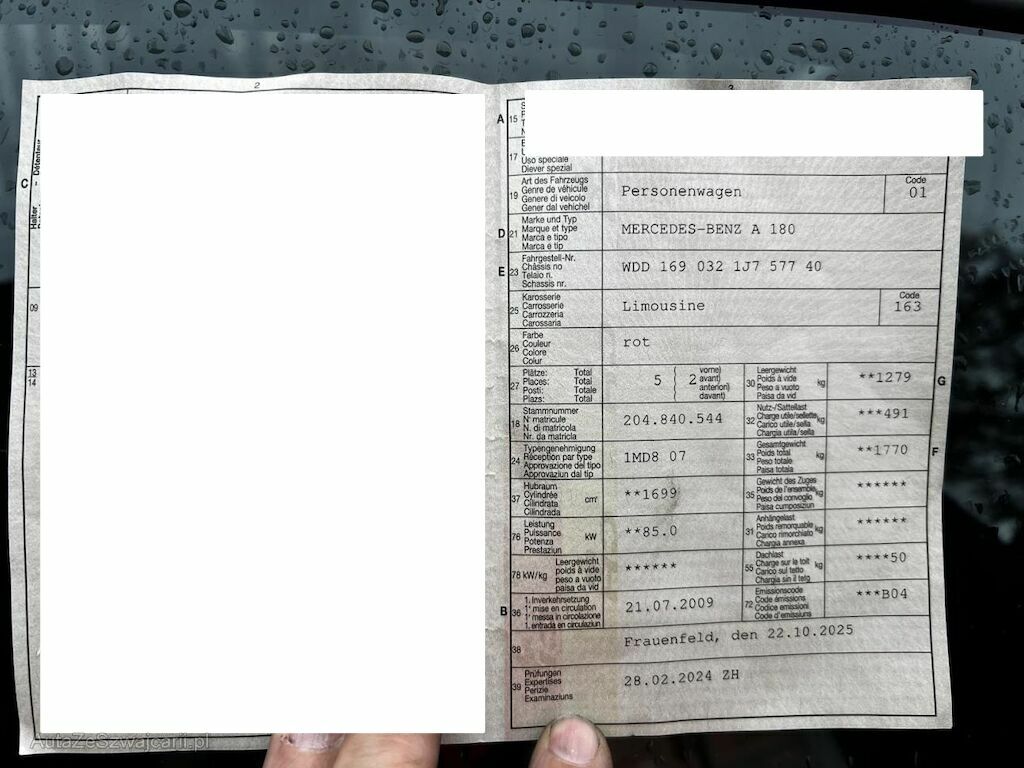 2
3
C
Détenteur
Halter
09
13
14
A
15
17
Uso speciale
Diever spezial
19
Art des Fahrzeugs
Genre de véhicule
Genere di veicolo
Gener dal vehichel
Personenwagen
Code
01
D
21
Marke und Typ
Marque et type
Marca e tipo
Marca e tip
MERCEDES-BENZ A 180
E
23
Fahrgestell-Nr.
Châssis no
Telaio n.
Schassis nr.
WDD 169 032 1J7 577 40
25
Karosserie
Carrosserie
Carrozzeria
Carossaria
Limousine
Code
163
26
Farbe
Couleur
Colore
Colur
rot
27
Plätze: Total
Places: Total
Posti: Totale
Plazs: Total
5 ( 2
vorne)
avant)
anteriori)
davant)
30
Leergewicht
Poids à vide
Peso a vuoto
Paisa da vid
kg
**1279
G
18
Stammnummer
N° matricule
N. di matricola
Nr. da matricla
204.840.544
32
Nutz-/Sattellast
Charge utile/sellette
Carico utile/sella
Chargia utila/sella
kg
***491
24
Typengenehmigung
Réception par type
Approvazione del tipo
Approvaziun dal tip
1MD8 07
33
Gesamtgewicht
Poids total
Peso totale
Paisa totala
kg
**1770
F
37
Hubraum
Cylindrée
Cilindrata
Cilindrada
cm³
**1699
35
Gewicht des Zuges
Poids de l'ensemble
Peso del convoglio
Paisa cumposiziun
kg
******
76
Leistung
Puissance
Potenza
Prestaziun
kW
**85.0
31
Anhängelast
Poids remorquable
Carico rimorchiato
Chargia annexa
kg
******
78 kW/kg
Leergewicht
poids à vide
peso a vuoto
paisa da vid
******
55
Dachlast
Charge sur le toit
Carico sul tetto
Chargia sin il tetg
kg
****50
B
36
1. Inverkehrsetzung
1re mise en circulation
1a messa in circolazione
1. entrada en circulaziun
21.07.2009
72
Emissionscode
Code émissions
Codice emissioni
Code d'emissiuns
***B04
38
Frauenfeld, den 22.10.2025
39
Prüfungen
Expertises
Perizie
Examinaziuns
28.02.2024 ZH
AutaZeSzwajcarii.pl